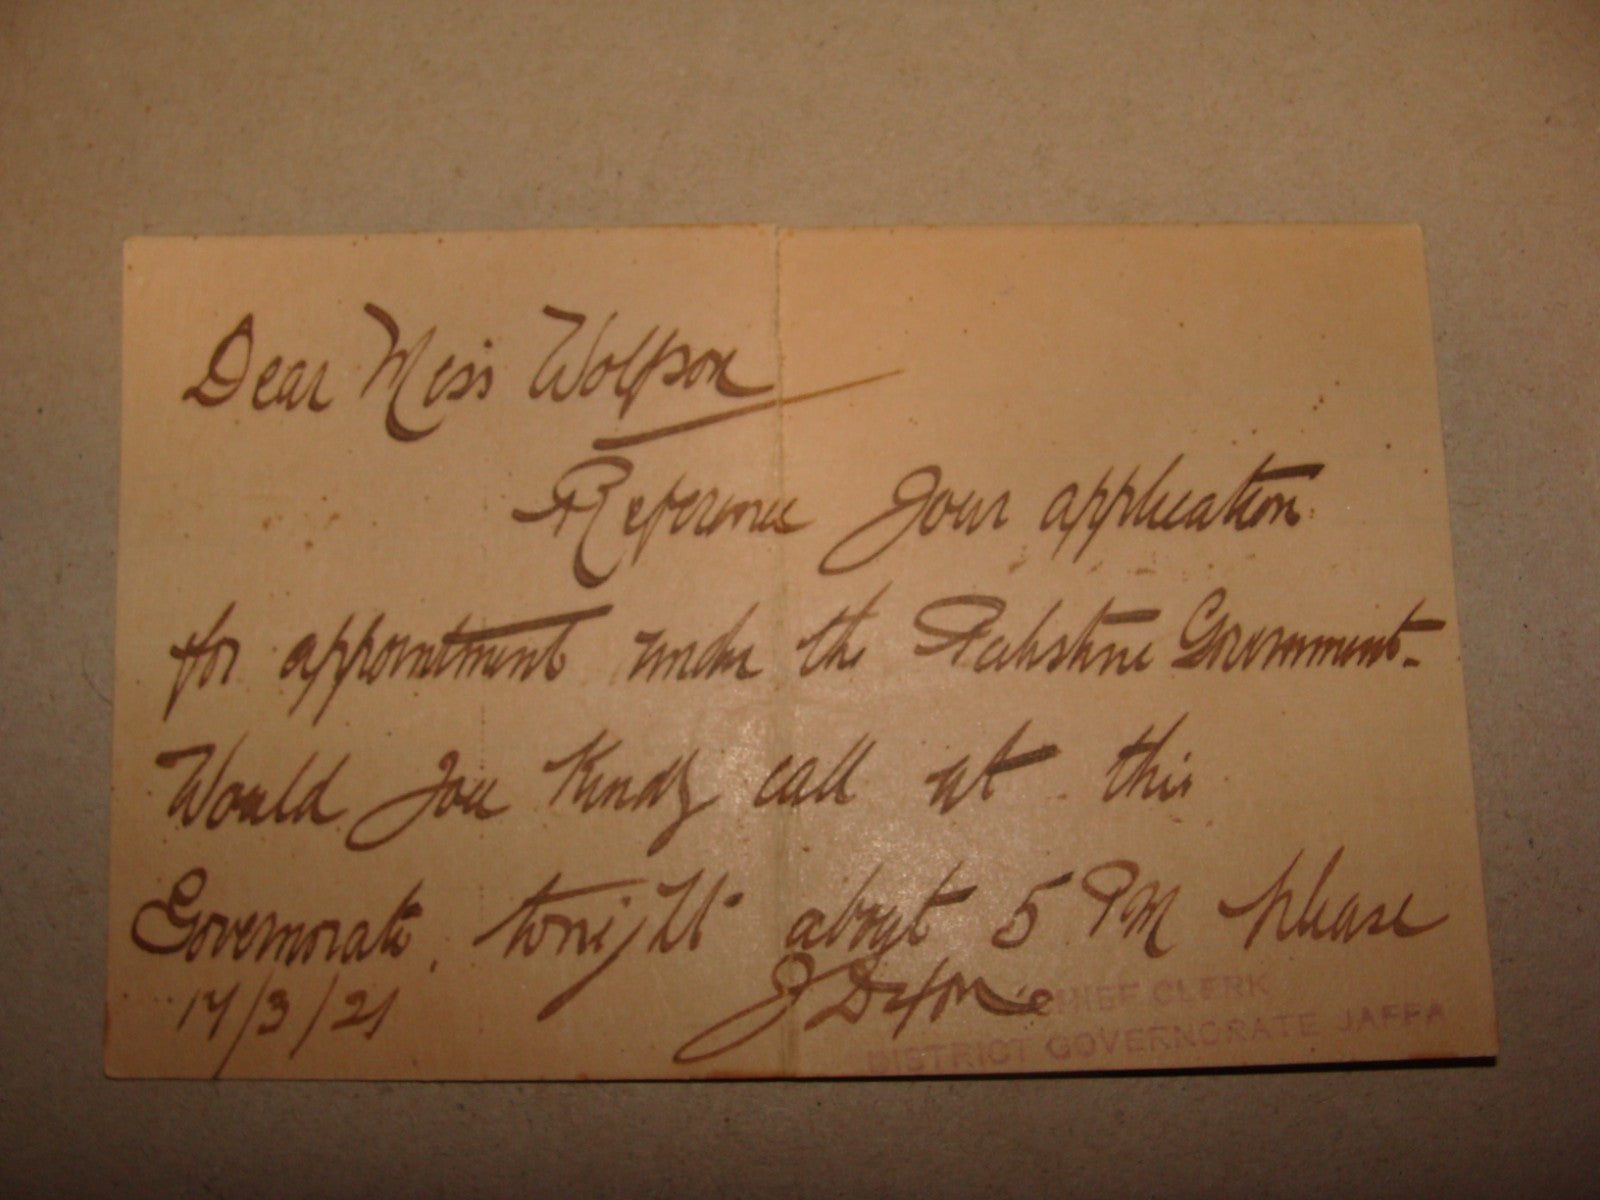 Dear Miss Wolfson
Reference your application
for appointment under the Palestine Government.
Would you kindly call at this
Governorate, tonight about 5 PM please
J Dixon
14/3/21
CHIEF CLERK
DISTRICT GOVERNORATE JAFFA